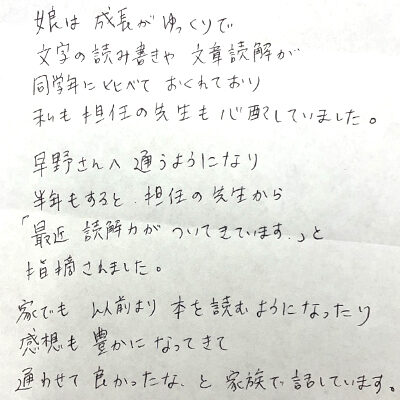 娘は 成長が ゆっくりで
文字の読み書きや 文章読解が
同学年に比べて おくれており
私も 担任の先生も 心配していました。
早野さんへ 通うようになり
半年もすると、担任の先生から
「最近 読解力が ついてきています。」と
指摘されました。
家でも 以前より 本を読むようになったり
感想も 豊かになってきて
通わせて 良かったな、と 家族で話しています。